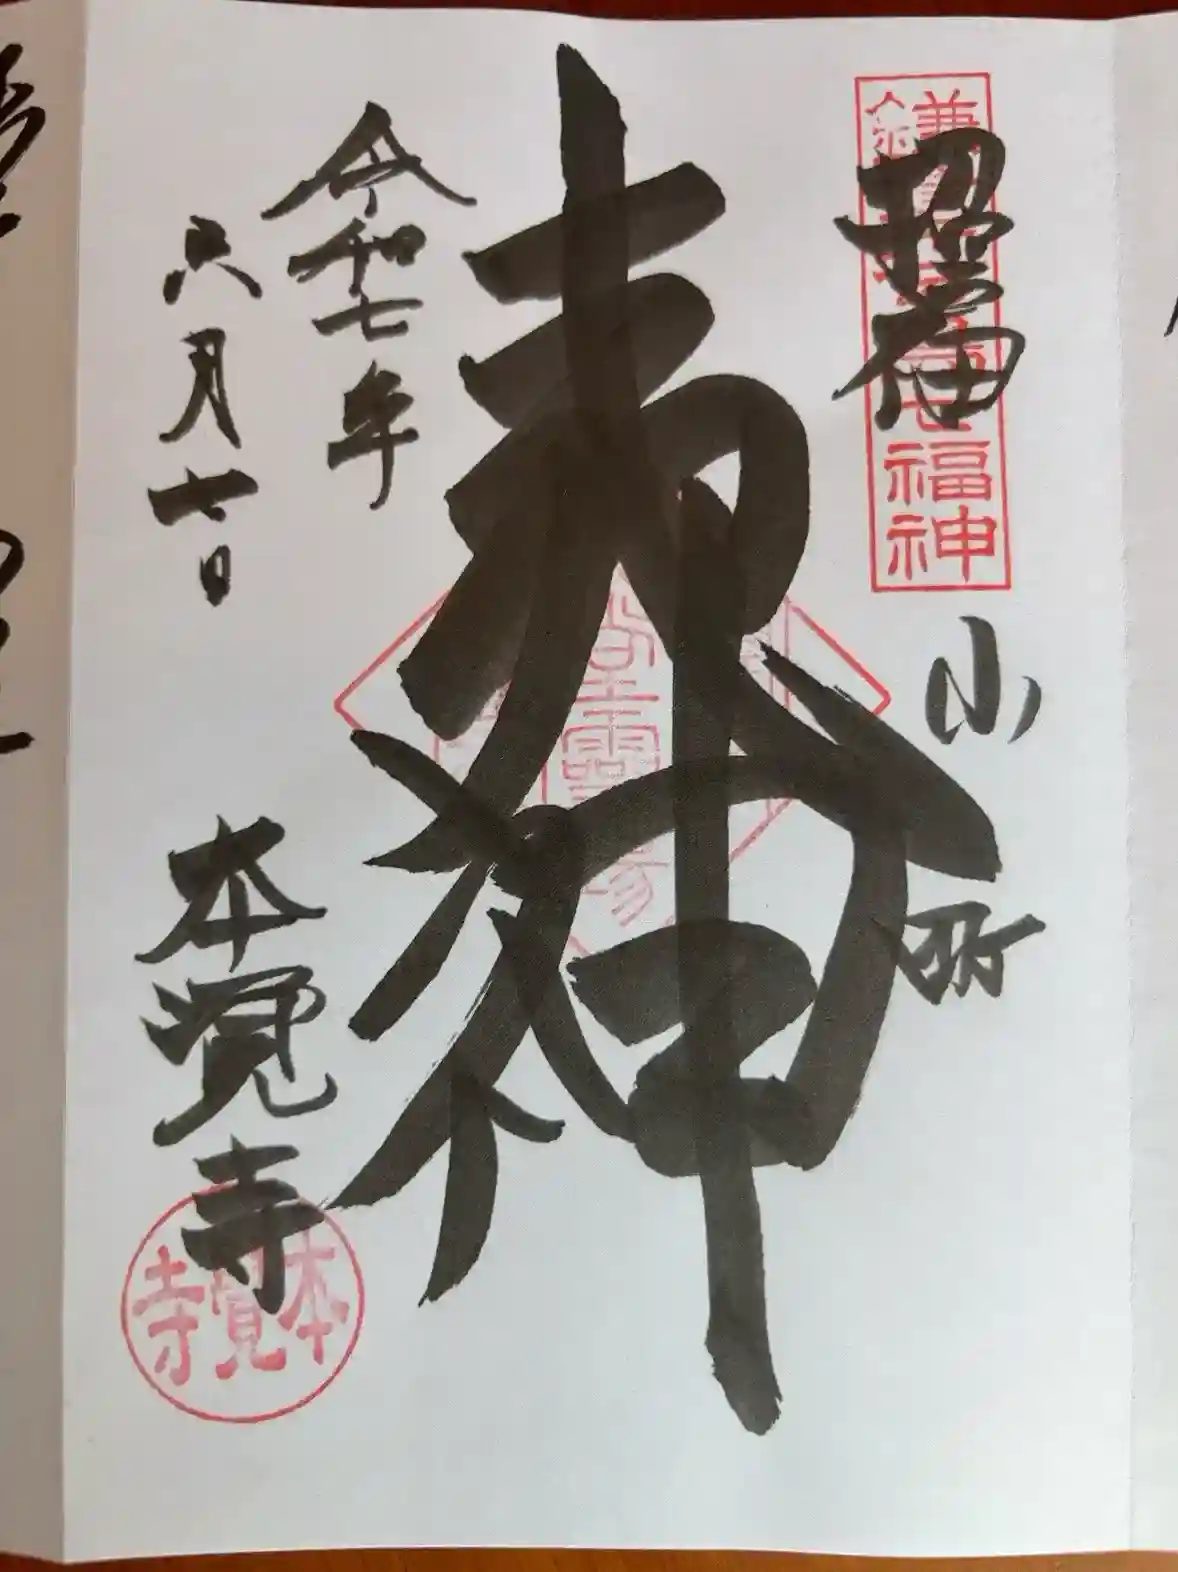 招福
鎌倉江の島七福神
小町
夷神
令和七年
六月七日
本覚寺
本覚寺